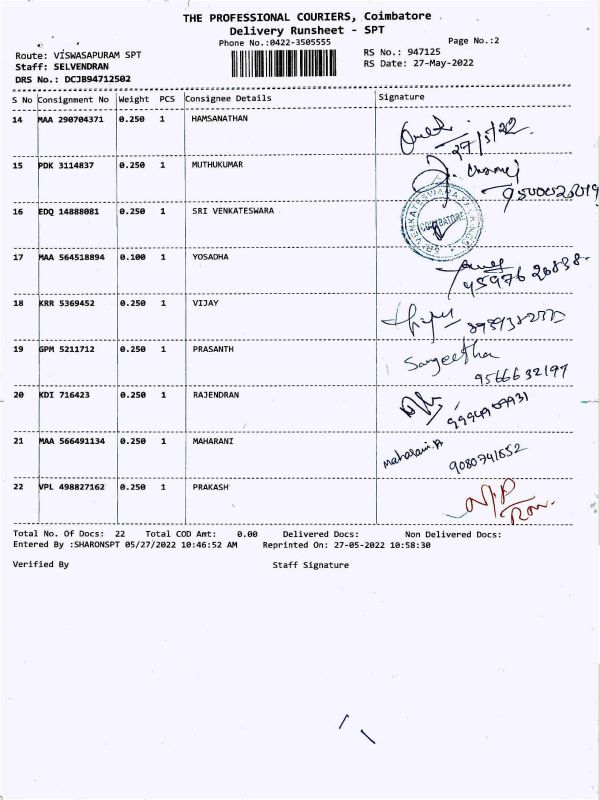 THE PROFESSIONAL COURIERS, Coimbatore
Delivery Runsheet - SPT
Phone No.:0422-3505555
Page No.:2
Route: VISWASAPURAM SPT
RS No.: 947125
Staff: SELVENDRAN
RS Date: 27-May-2022
DRS No.: DCJ894712502
S No Consignment No Weight PCS Consignee Details Signature
14 MAA 290704371 0.250 1 HAMSANATHAN
27/5/22
15 PDK 3114837 0.250 1 MUTHUKUMAR
16 EDQ 14888081 0.250 1 SRI VENKATESWARA
SRI VENKATESWARA
COIMBATORE
17 MAA 564518894 0.100 1 YOSADHA
18 KRR 5369452 0.250 1 VIJAY
19 GPM 5211712 0.250 1 PRASANTH
Sangeetha
9566632197
20 KDI 716423 0.250 1 RAJENDRAN
21 MAA 566491134 0.250 1 MAHARANI
maharani.A
9080741652
22 VPL 498827162 0.250 1 PRAKASH
N/P
Total No. Of Docs: 22 Total COD Amt: 0.00 Delivered Docs: Non Delivered Docs:
Entered By :SHARONSPT 05/27/2022 10:46:52 AM Reprinted On: 27-05-2022 10:58:30
Verified By Staff Signature